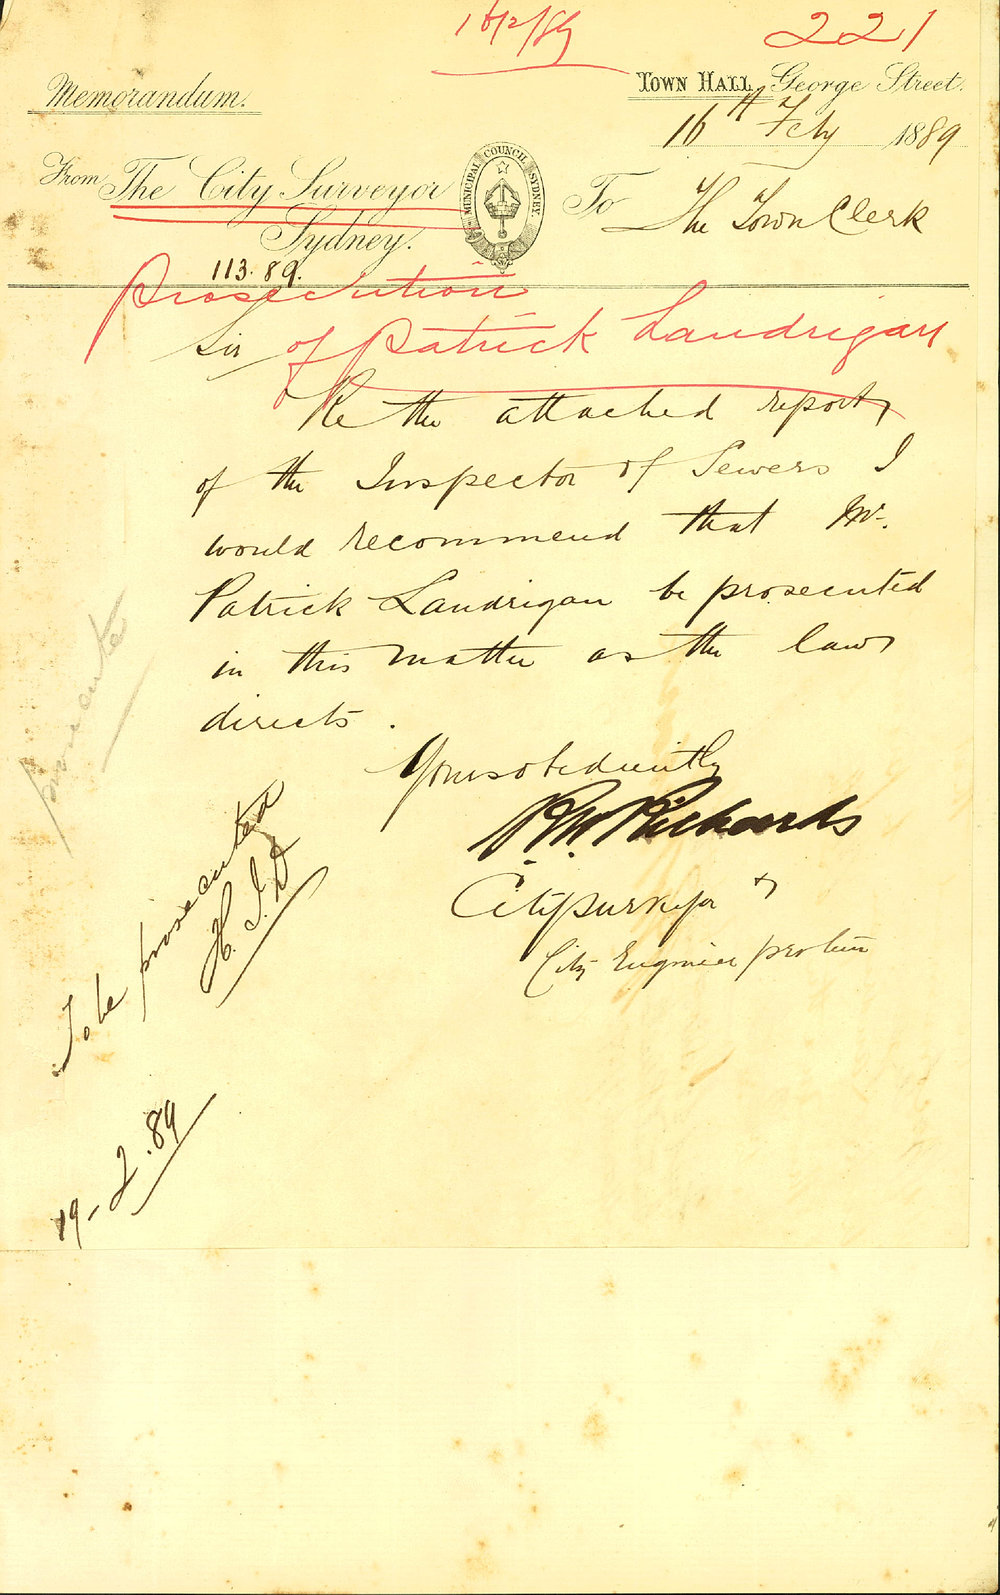 16/2/89
221
Memorandum.
Town Hall, George Street.
16th Feby 1889
From The City Surveyor
Sydney.
MUNICIPAL COUNCIL SYDNEY.
To The Town Clerk
113.89.
Prosecution
of Patrick Landrigan
Sir
Re the attached report
of the Inspector of Sewers I
would recommend that Mr.
Patrick Landrigan be prosecuted
in this matter as the law
directs.
Yours obediently
R.W. Richards
City Surveyor &
City Engineer pro tem
prosecute
To be prosecuted
19-2.89